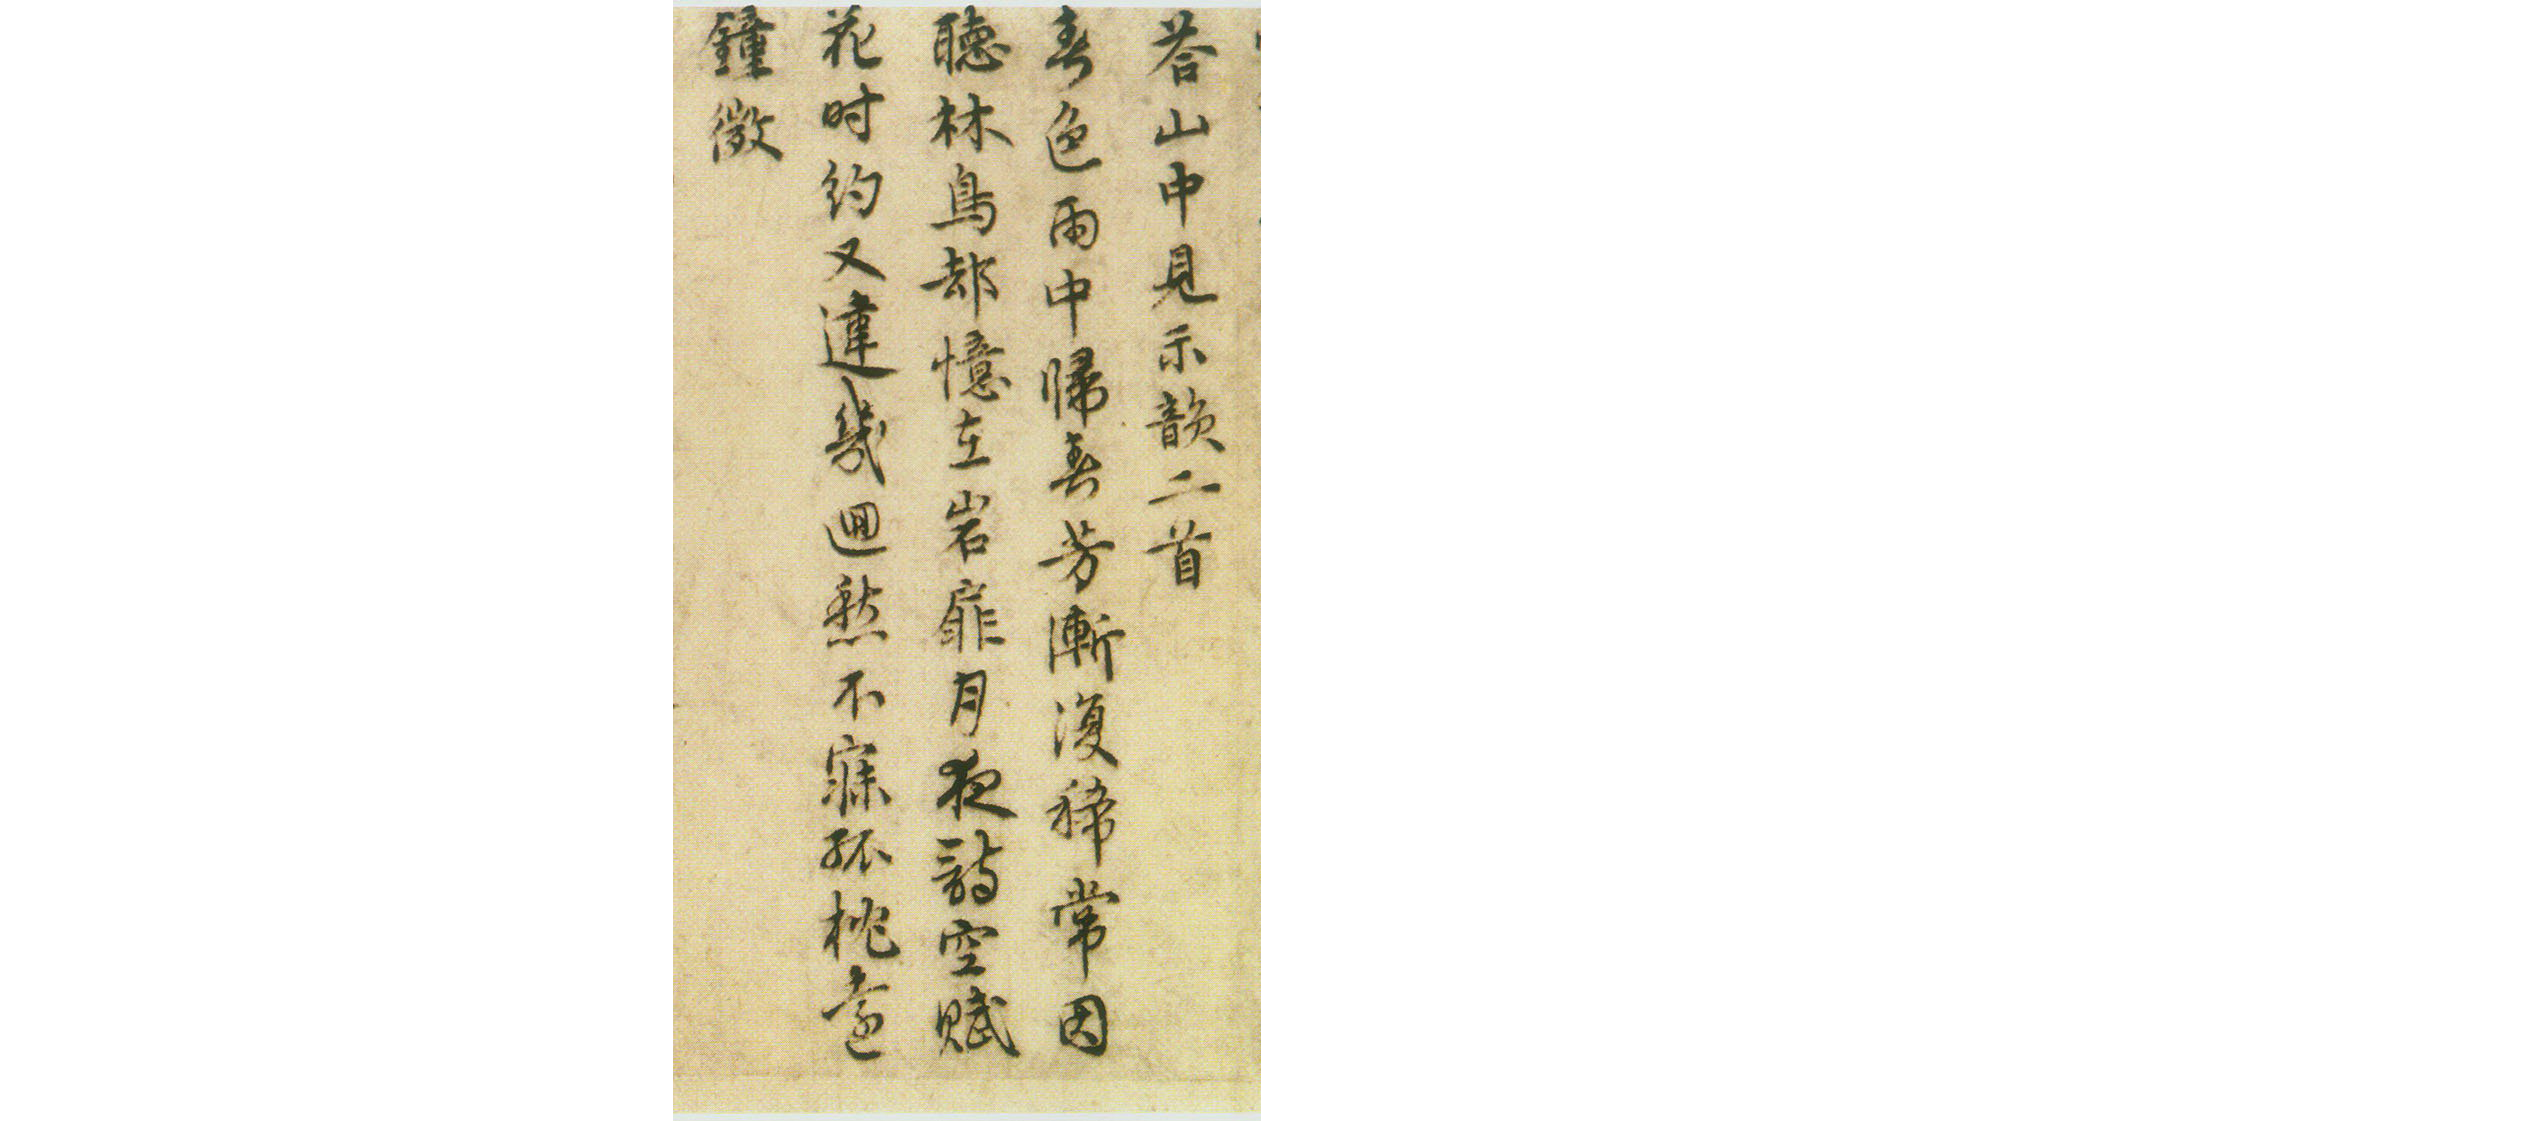 荅山中見示韵二首
春色雨中歸春芳漸復稀常因
聽林鳥却憶在岩扉月夜詩空賦
花时約又違幾迴愁不寐孤枕遠
鐘微